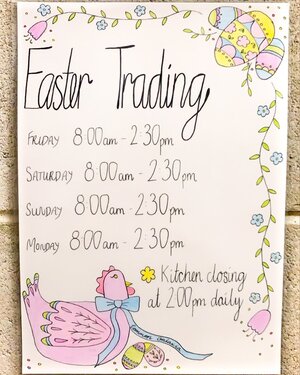 Easter Trading
FRIDAY 8:00am - 2:30pm
SATURDAY 8:00am - 2:30pm
SUNDAY 8:00am - 2:30pm
MONDAY 8:00am - 2:30pm
Kitchen closing
at 2:00pm daily